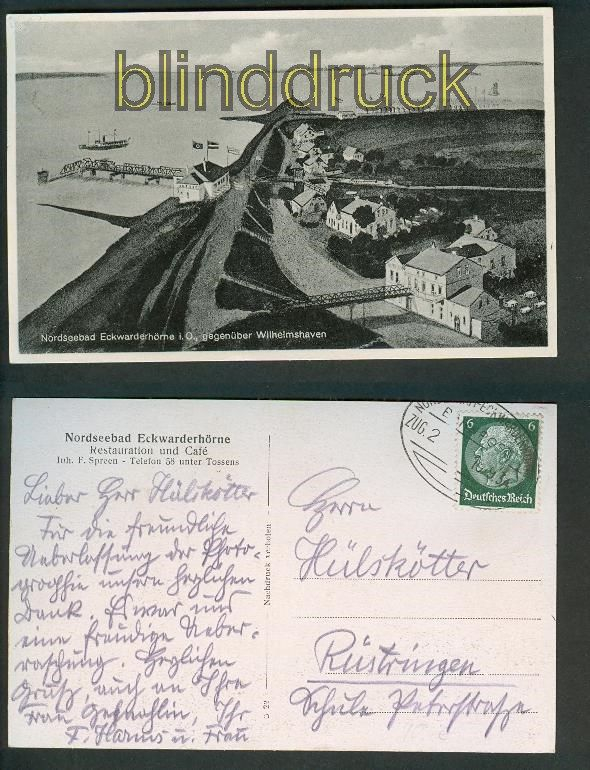 blinddruck
Nordseebad Eckwarderhörne i. O., gegenüber Wilhelmshaven
Nordseebad Eckwarderhörne
Restauration und Café
Inh. F. Spreen - Telefon 58 unter Tossens
Lieber Herr Hülskötter
Für die freundliche
Ueberlassung der Photo-
graphie unsern herzlichen
Dank. Es war uns
eine freudige Ueber-
raschung. Herzlichen
Gruß, auch an Ihre
Frau Gemahlin, Ihr
F. Harms u. Frau
Nachdruck verboten
ZUG 2
6 6
Deutsches Reich
Herrn
Hülskötter
Rüstringen
Schule Peterstraße